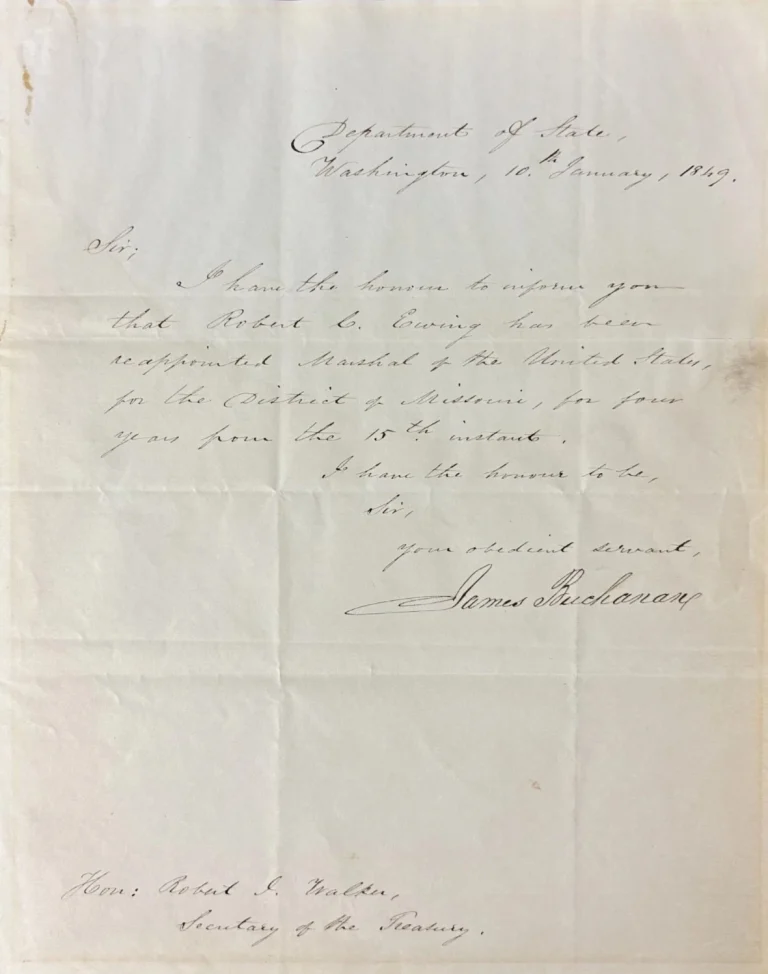 Department of State,
Washington, 10.th January, 1849.
Sir;
I have the honour to inform you
that Robert C. Ewing has been
reappointed Marshal of the United States,
for the District of Missouri, for four
years from the 15th instant.
I have the honour to be,
Sir,
your obedient servant,
James Buchanan
Hon: Robert J. Walker,
Secretary of the Treasury.